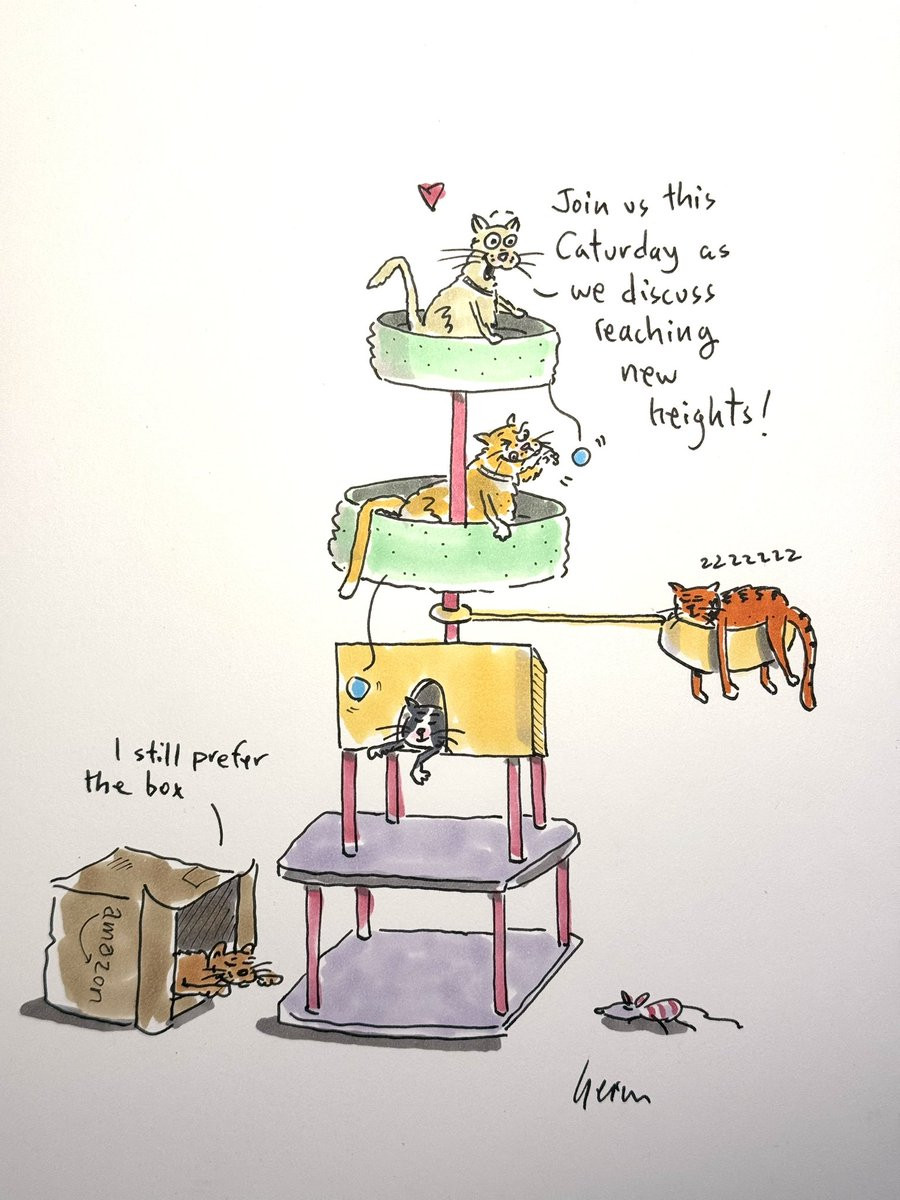 Join us this
Caturday as
we discuss
reaching
new
heights!
zzzzzzz
I still prefer
the box
amazon
herm